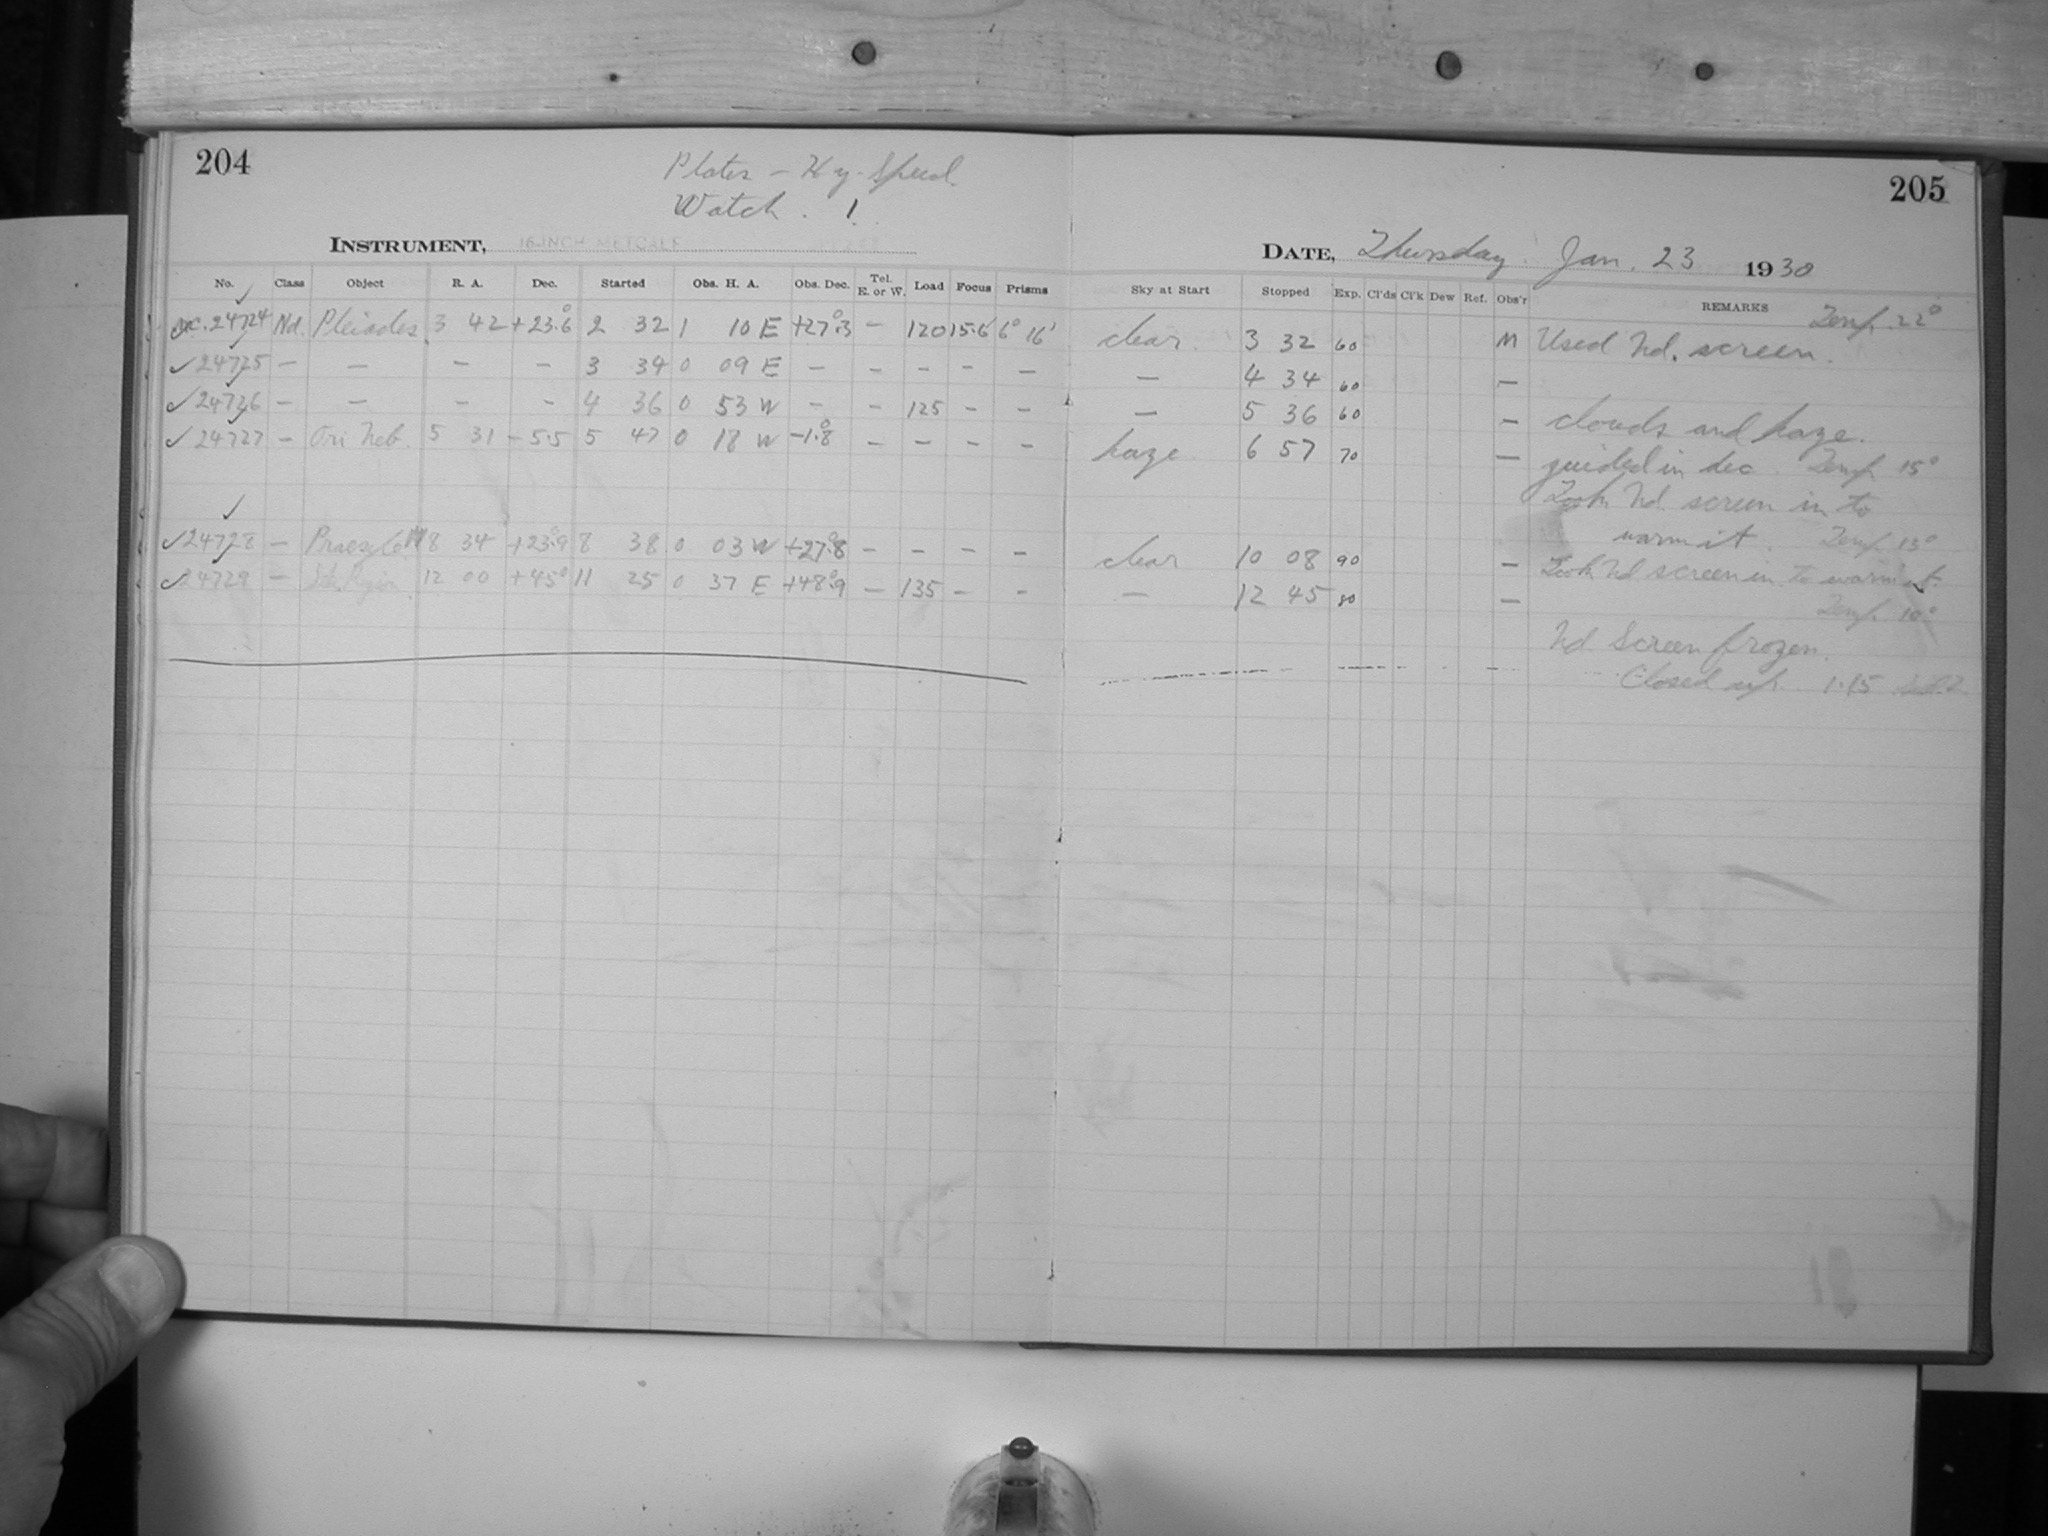 204
Plates – Hy-Speed
Watch. 1.
205
INSTRUMENT, 16-INCH METCALF
DATE, Thursday Jan. 23 1930
No. Class Object R. A. Dec. Started Obs. H. A. Obs. Dec. Tel. E. or W. Load Focus Prisms Sky at Start Stopped Exp. Cl'ds Cl'k Dew Ref. Obs'r REMARKS
Temp. 22°
24724 Nd. Pleiades 3 42 +23.°6 2 32 1 10 E +27.°3 – 120 15.6 6° 16' clear. 3 32 60 M Used Nd. screen.
✓24725 – – – – 3 34 0 09 E – – – – – – 4 34 60 –
✓24726 – – – – 4 36 0 53 W – – 125 – – – 5 36 60 – clouds and haze.
✓24727 – Ori Neb. 5 31 –5.5 5 47 0 18 W –1.°8 – – – – haze 6 57 70 – guided in dec. Temp. 15°
Took Nd. screen in to
warm it. Temp. 13°
✓24728 – 8 34 +23.°9 8 38 0 03 W +27.°8 – – – – clear 10 08 90 – Took Nd screen in to warm it.
✓24729 – 12 00 +45° 11 25 0 37 E +48.°9 – 135 – – – 12 45 80 – Temp. 10°
Nd Screen frozen.
Closed up.